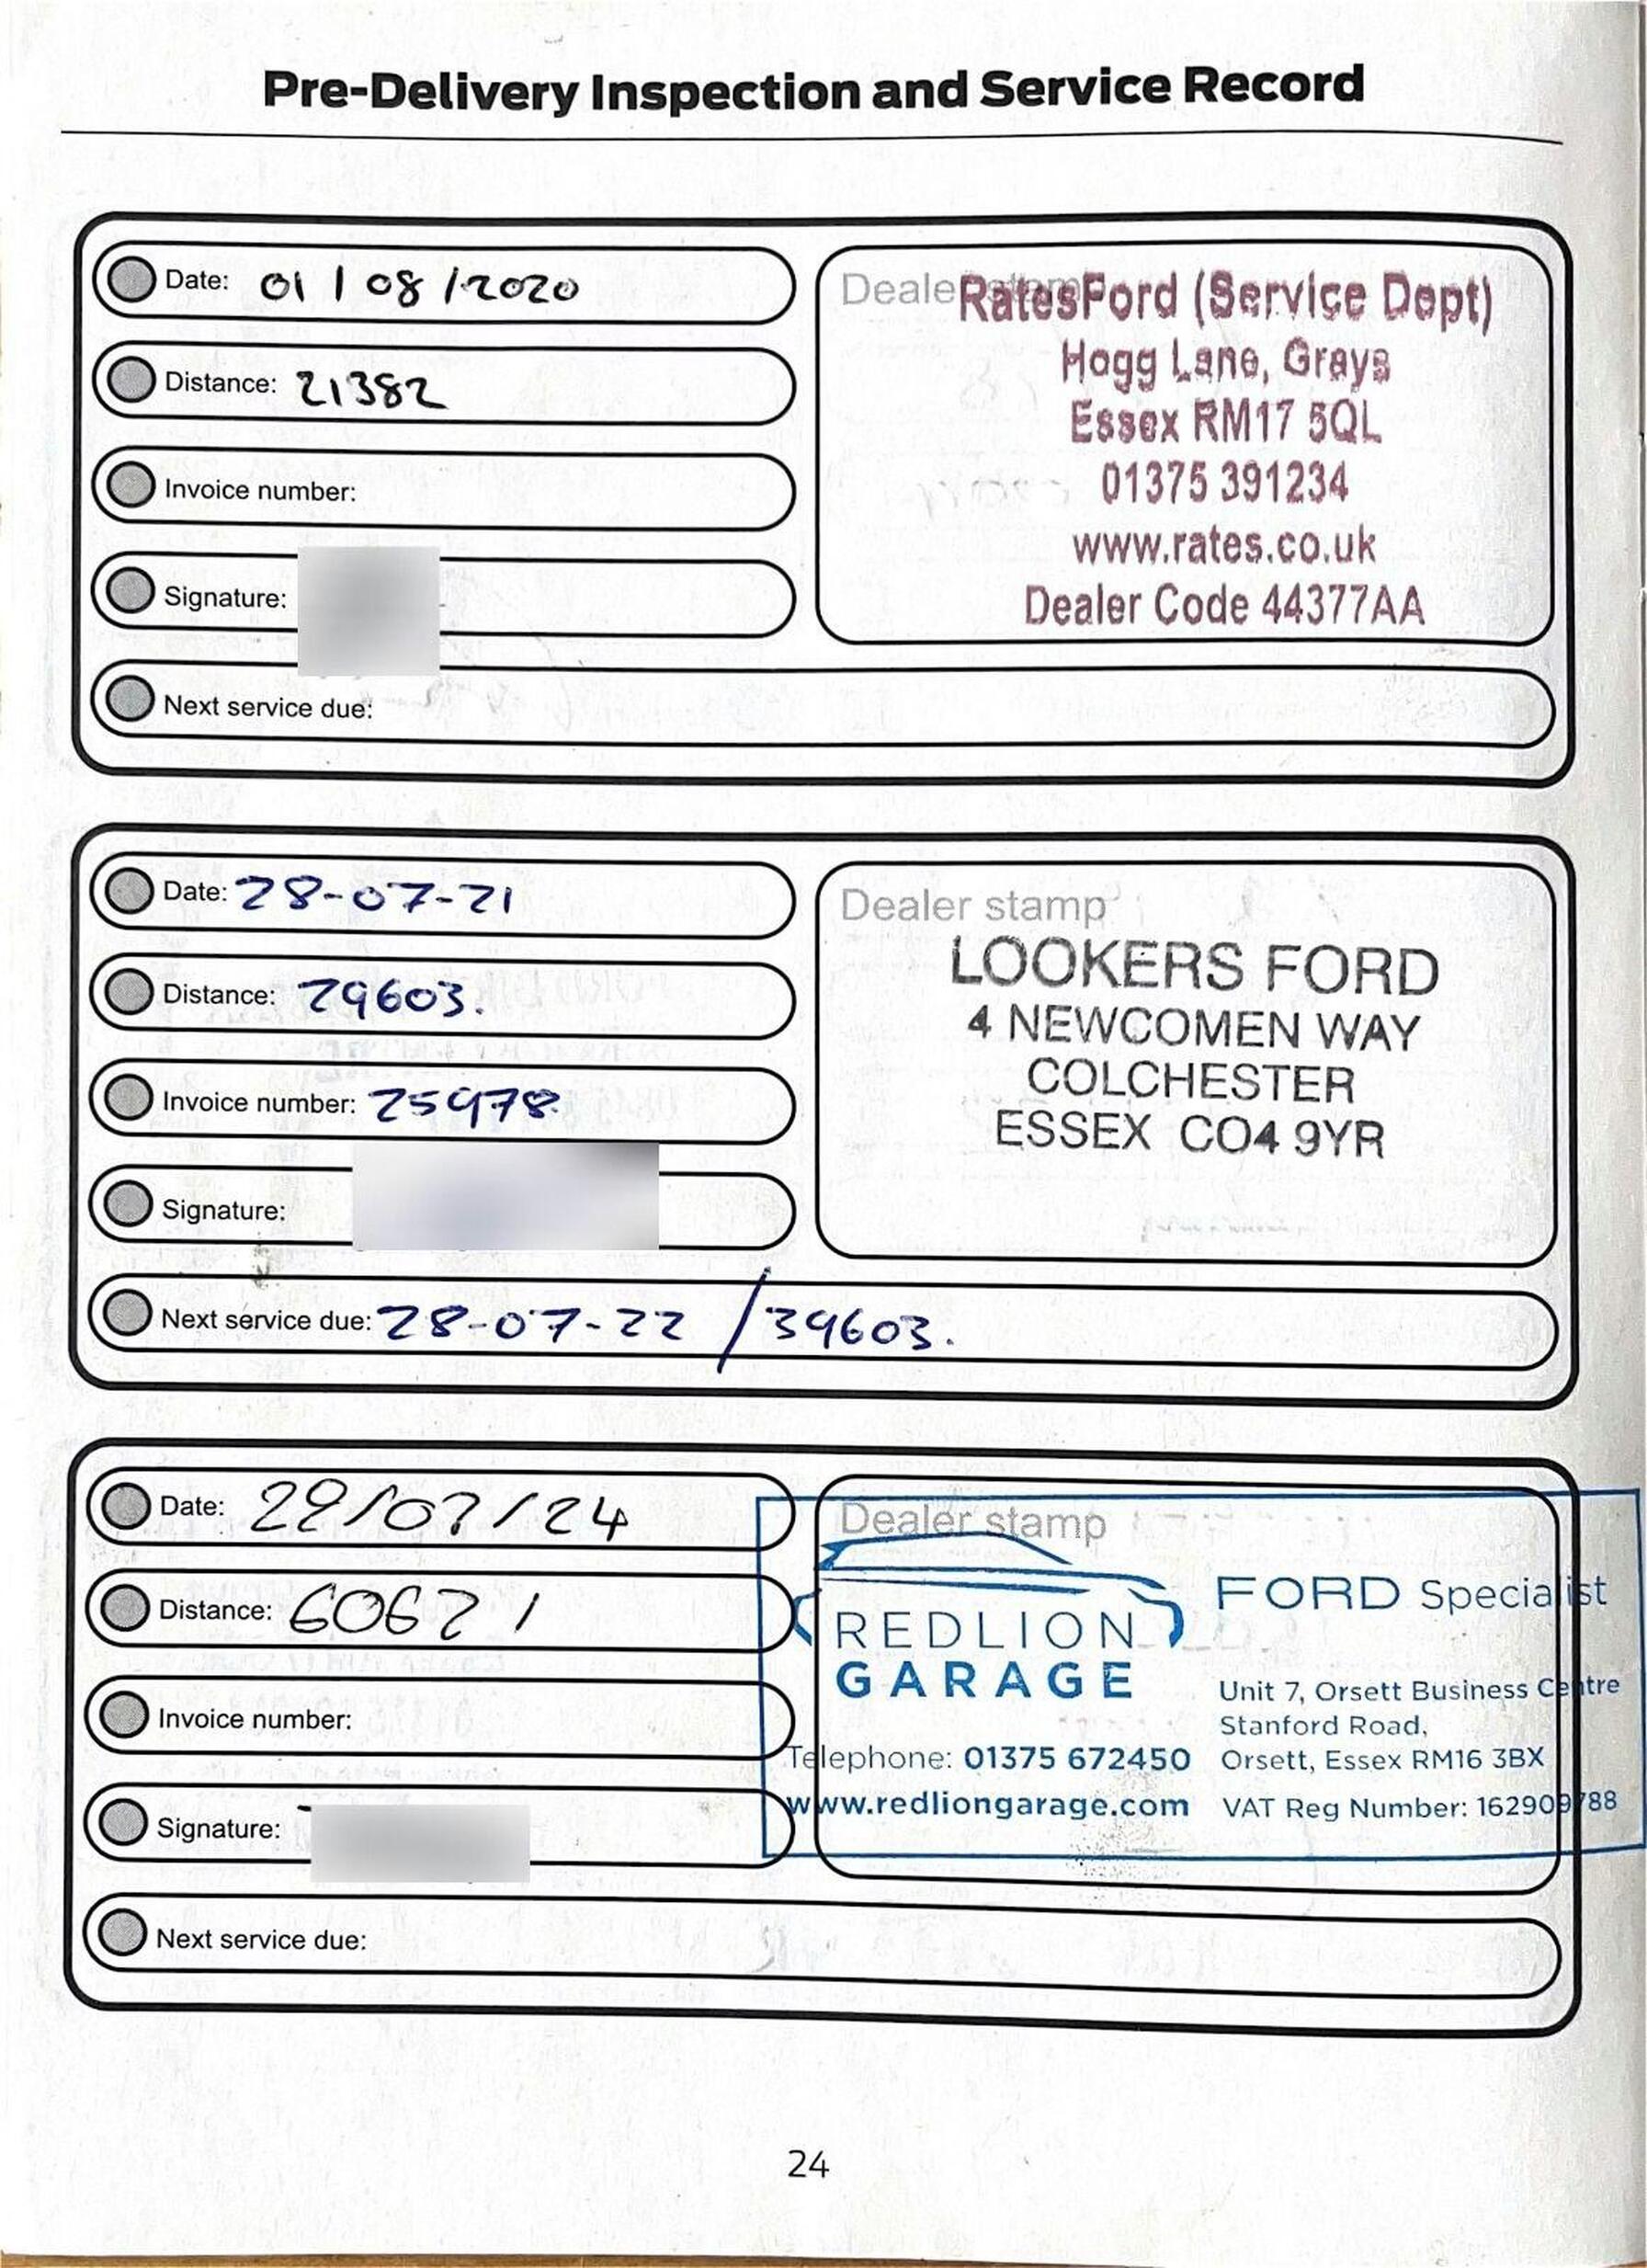 Pre-Delivery Inspection and Service Record
Date: 01 / 08 / 2020
Distance: 21382
Invoice number:
Signature:
Next service due:
RatesFord (Service Dept)
Hogg Lane, Grays
Essex RM17 5QL
01375 391234
www.rates.co.uk
Dealer Code 44377AA
Date: 28-07-21
Distance: 29603.
Invoice number: 25978
Signature:
Next service due: 28-07-22 / 39603.
Dealer stamp
LOOKERS FORD
4 NEWCOMEN WAY
COLCHESTER
ESSEX CO4 9YR
Date: 29/07/24
Distance: 60621
Invoice number:
Signature:
Next service due:
Dealer stamp
REDLION
GARAGE
Telephone: 01375 672450
www.redliongarage.com
FORD Specialist
Unit 7, Orsett Business Centre
Stanford Road,
Orsett, Essex RM16 3BX
VAT Reg Number: 162909788
24